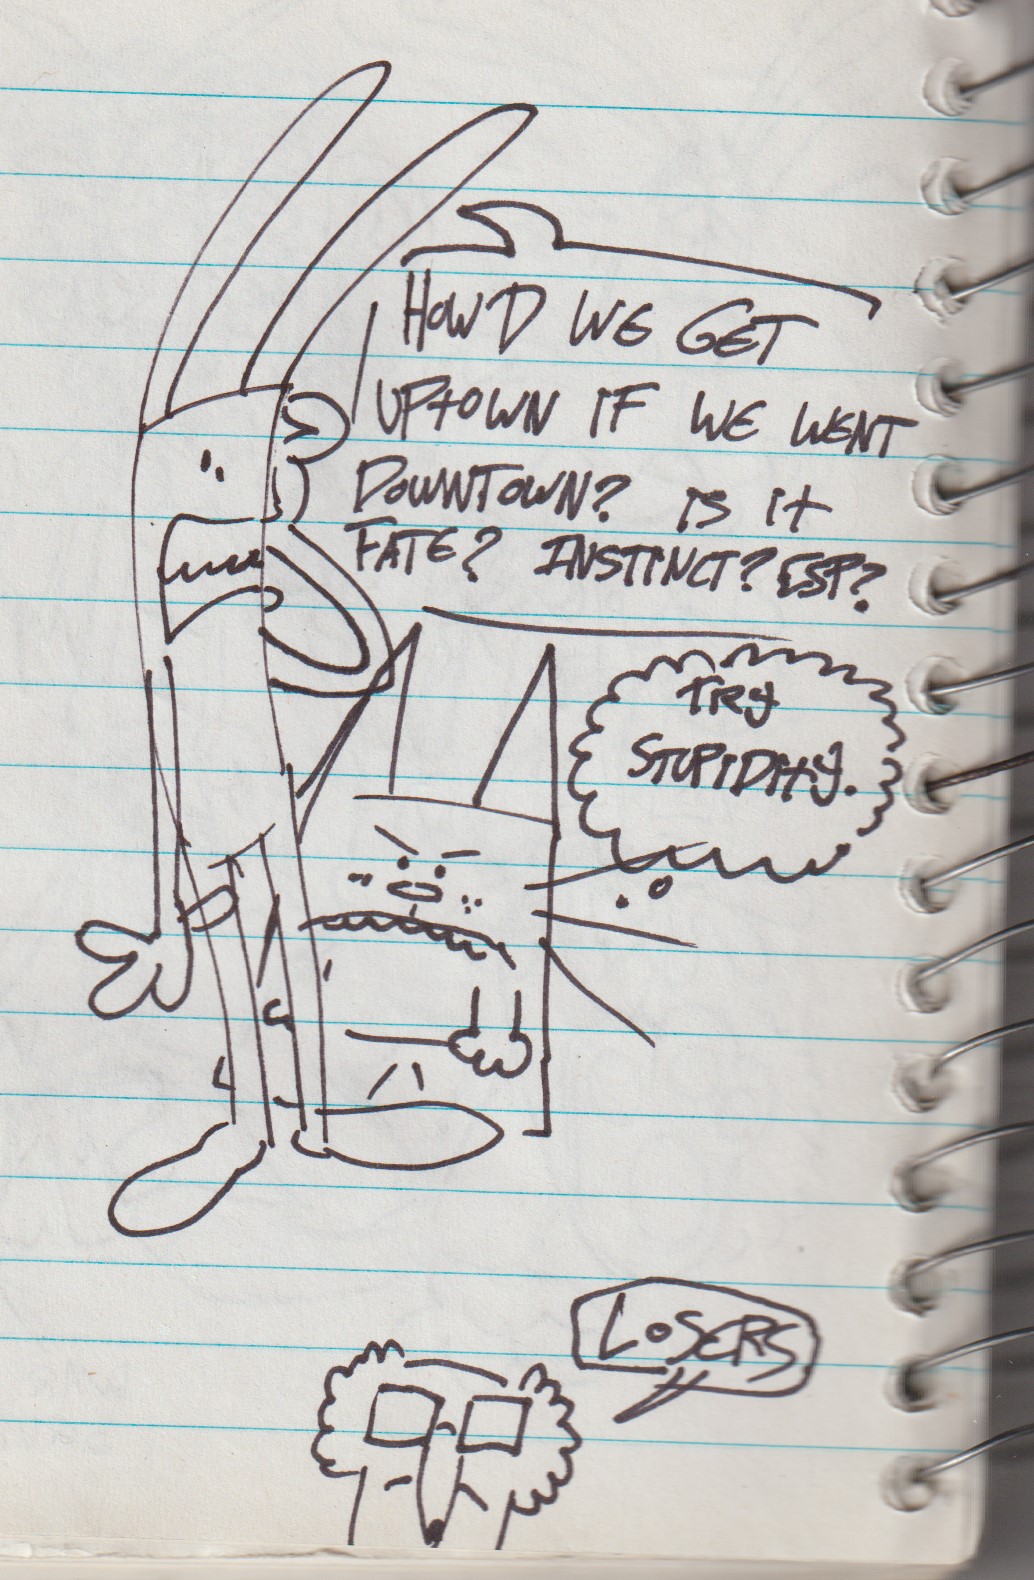 HOW'D WE GET
UPTOWN IF WE WENT
DOWNTOWN? IS IT
FATE? INSTINCT? ESP?
TRY
STUPIDITY.
LOSERS